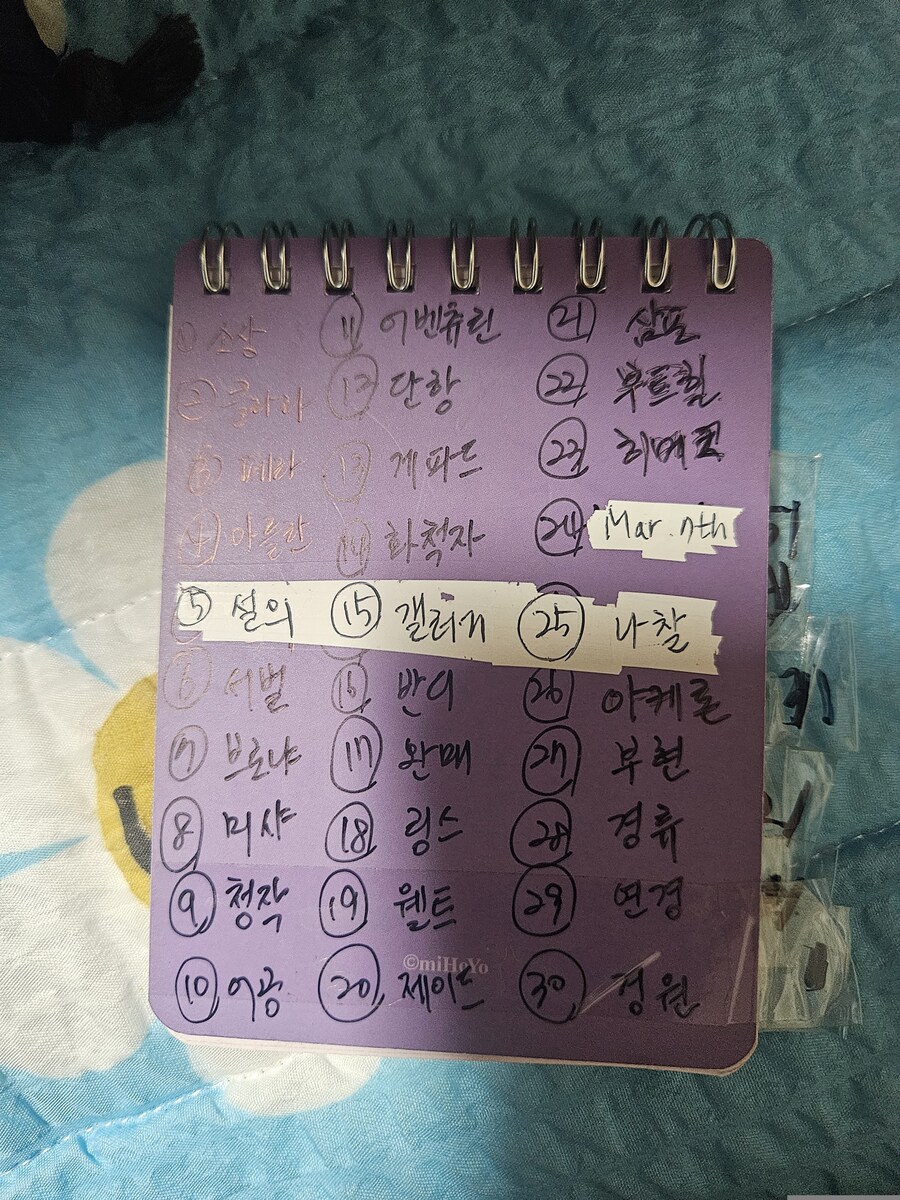 ① 소상 ⑪ 어벤츄린 ㉑ 삼포
② 클라라 ⑫ 단항 ㉒ 부트힐
③ 페라 ⑬ 게파드 ㉓ 히메코
④ 아를란 ⑭ 화척자 ㉔ Mar.7th
⑤ 설의 ⑮ 갤러거 ㉕ 나찰
⑥ 서벌 ⑯ 반디 ㉖ 아케론
⑦ 브로냐 ⑰ 완매 ㉗ 부현
⑧ 미샤 ⑱ 링스 ㉘ 경류
⑨ 청작 ⑲ 웰트 ㉙ 연경
⑩ 어공 ⑳ 제이드 ㉚ 경원
©miHoYo